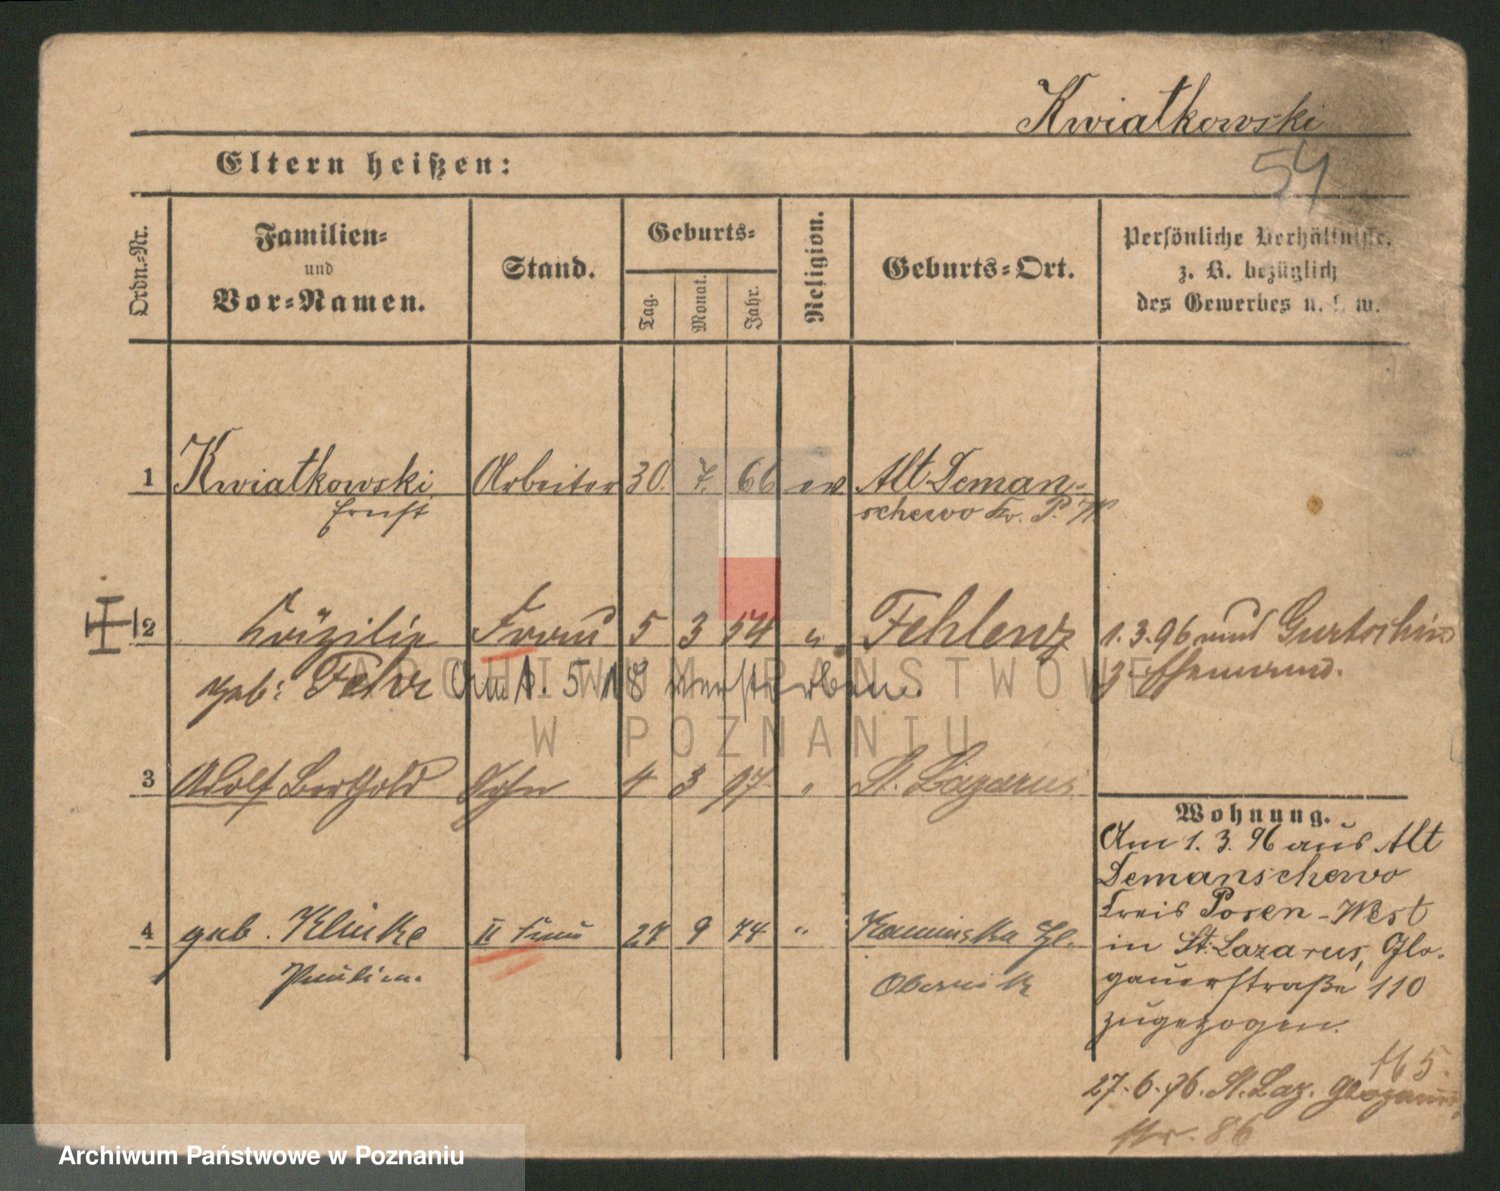 Kwiatkowski
54
Eltern heißen:
Ordn.-Nr.
Familien-
und
Vor-Namen.
Stand.
Geburts-
Tag.
Monat.
Jahr.
Religion.
Geburts-Ort.
Persönliche Verhältnisse,
z. B. bezüglich
des Gewerbes u. s. w.
1 Kwiatkowski Arbeiter 30. 7. 66 ev Alt Deman-
Ernst schewo Kr. P. W.
2 Cäzilie Frau 5 3 54 " Fehlenz 1.3.96 und Gurtschin
geb: Fehr Am 1. 5. 18 verstorben. z. Ehemann.
3 Adolf Berthold Sohn 4 3 97 " St. Lazarus
Wohnung.
Am 1. 3. 96 aus Alt
Demanschewo
Kreis Posen-West
in St. Lazarus, Glo-
gauerstraße 110
zugezogen.
4 geb. Klinke II Frau 27 9 74 " Kaminska Hl.
Paulin. Obernik
165.
27.6.96. St. Laz. Glogauer
str. 86
ARCHIWUM PAŃSTWOWE
W POZNANIU
Archiwum Państwowe w Poznaniu